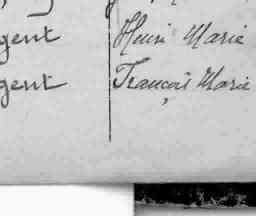 gent Henri Marie
gent François Marie